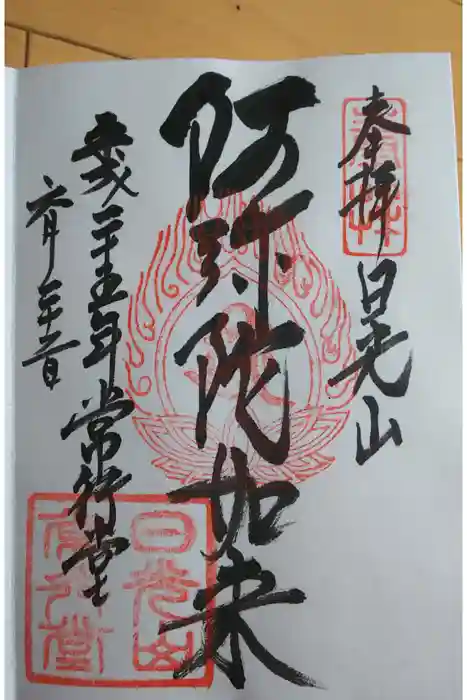 奉拝 日光山
阿弥陀如来
平成二十五年 常行堂
六月二十一日
奉拝
日光山
常行堂